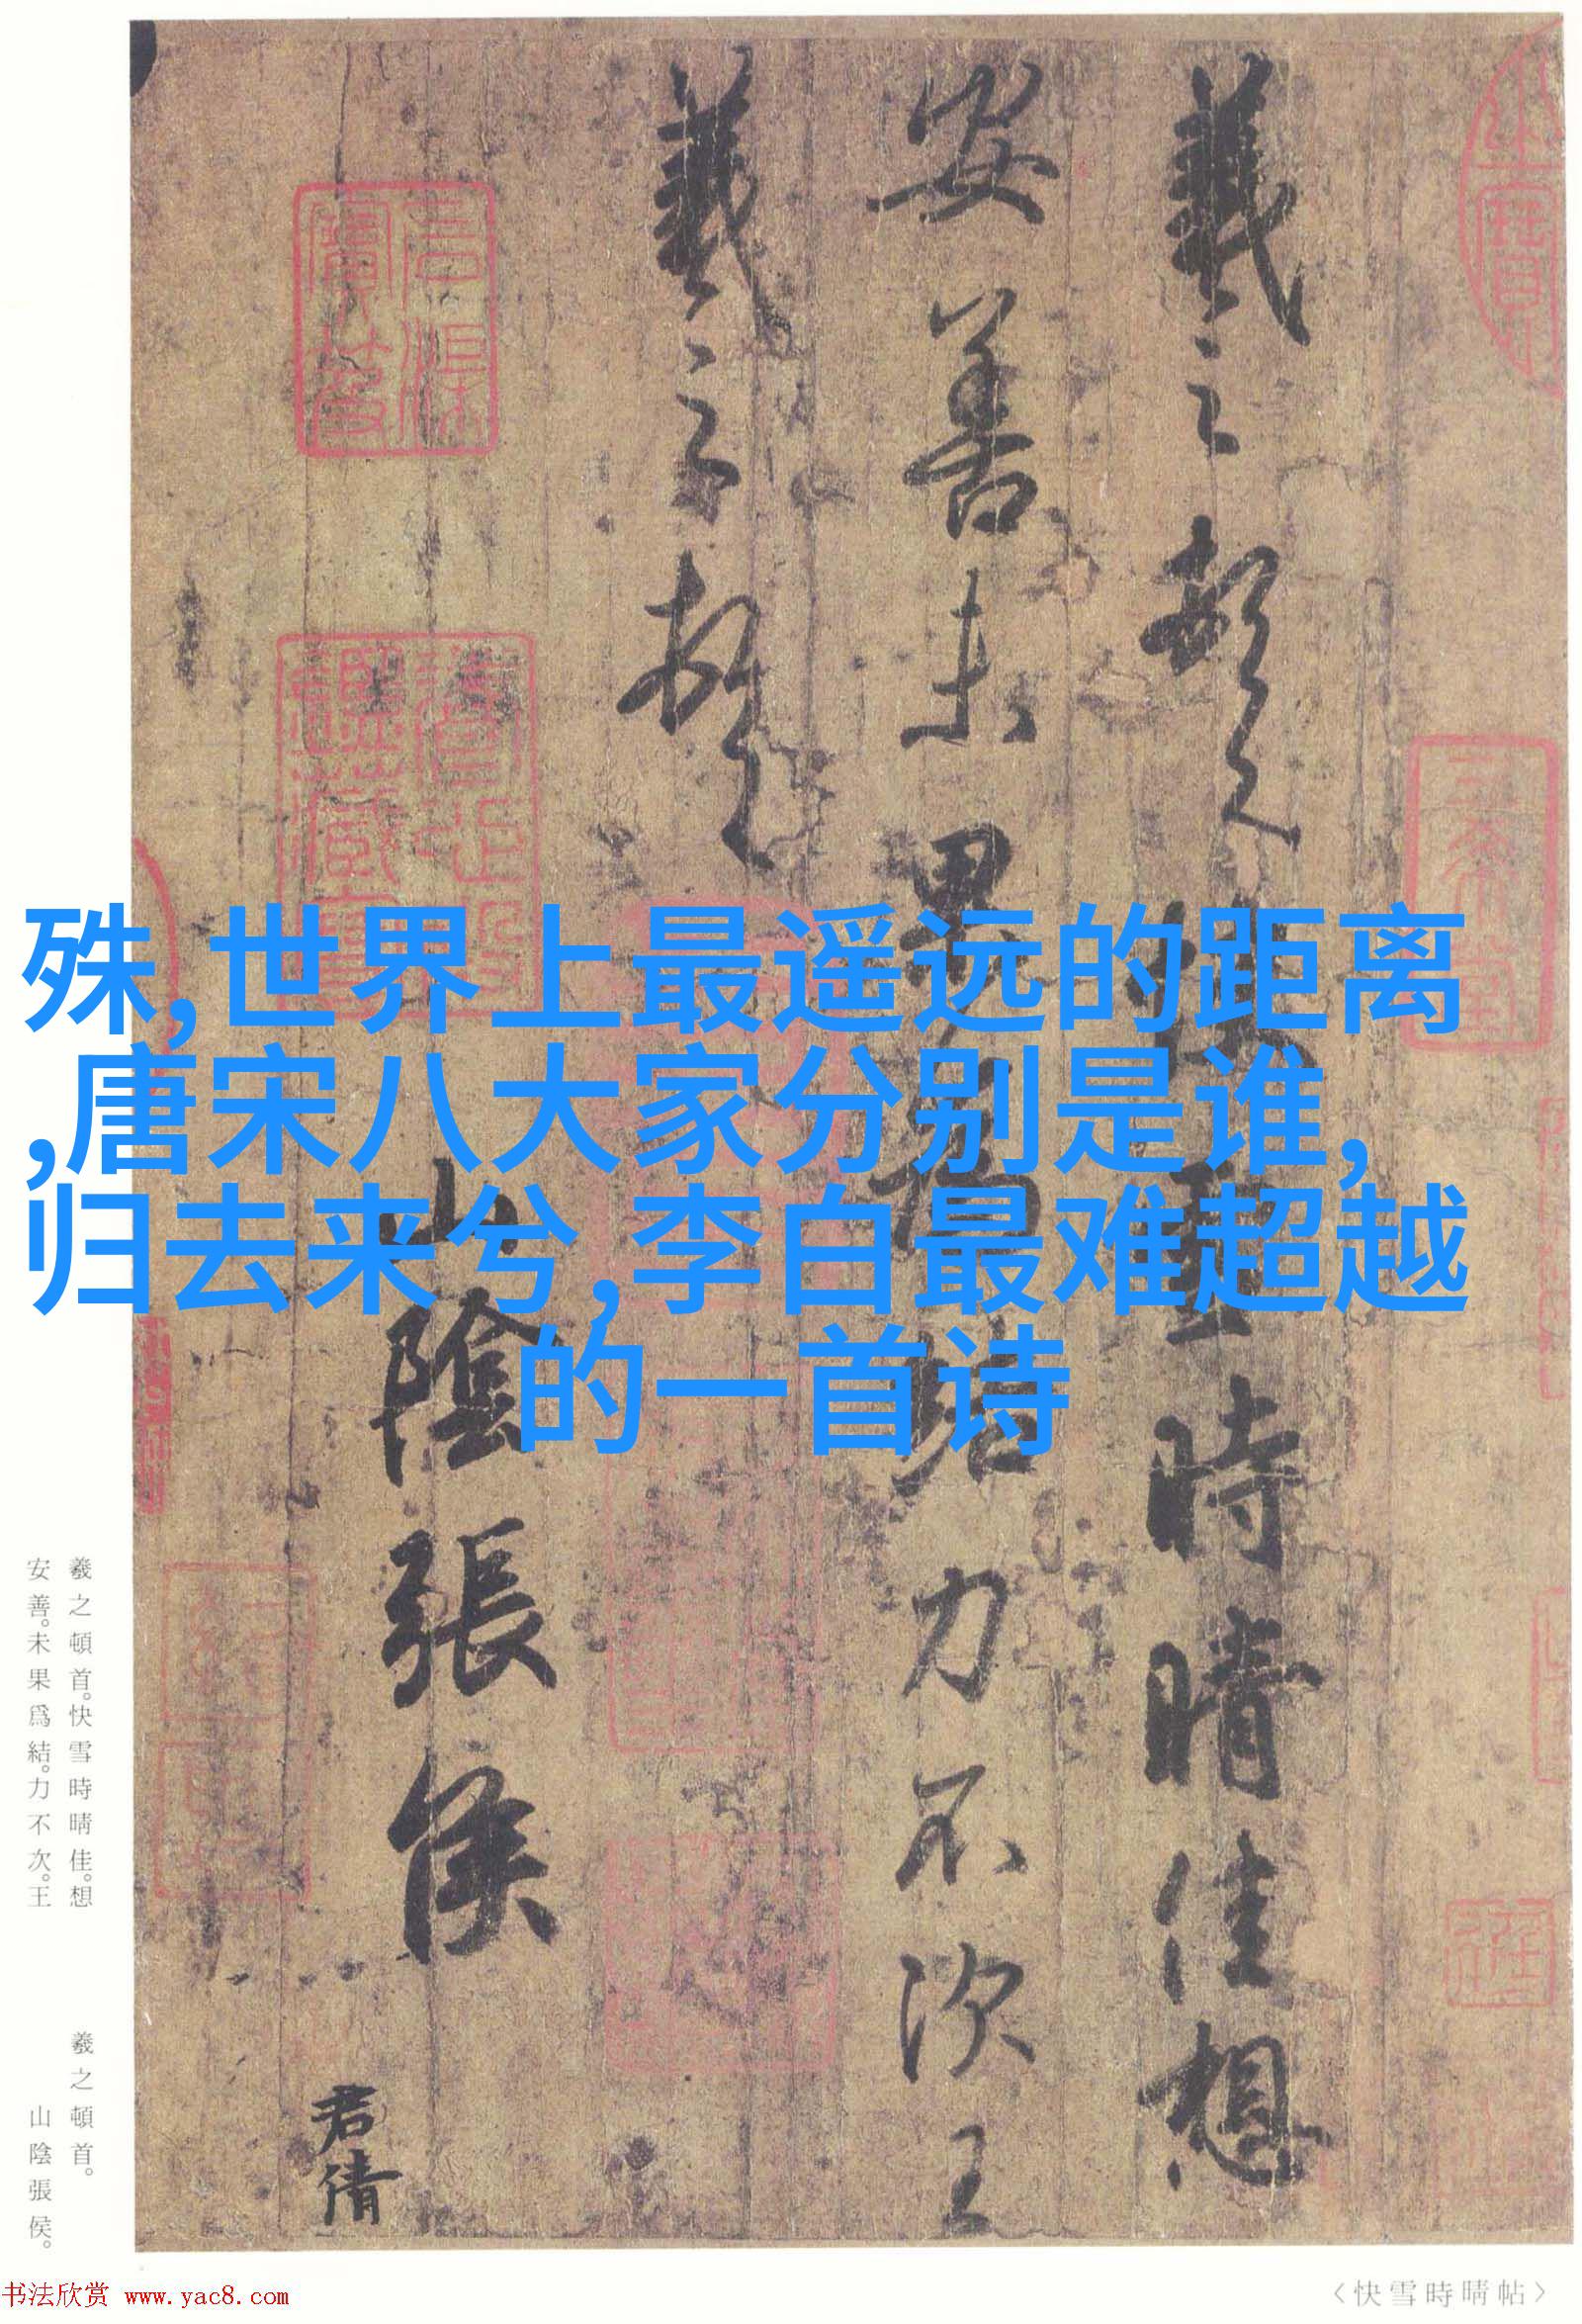 殊,世界上最遥远的距离
,唐宋八大家分别是谁,
归去来兮,李白最难超越
的一首诗
羲之頓首快雪時晴佳想
安善未果為結力不次王
羲之頓首
山陰張侯
君倩
羲之頓首。快雪時晴佳。想
安善。未果爲結。力不次。王
羲之頓首。
山陰張侯。
书法欣赏 www.yac8.com
〈快雪時晴帖〉